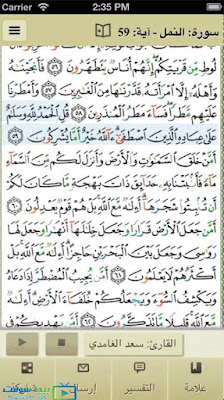 2:35 PM
سورة: النمل - آية: 59
لُوطٍ مِّن قَرْيَتِكُمْ إِنَّهُمْ أُنَاسٌ يَتَطَهَّرُونَ ﴿٥٦﴾ فَأَنجَيْنَٰهُ
وَأَهْلَهُۥٓ إِلَّا ٱمْرَأَتَهُۥ قَدَّرْنَٰهَا مِنَ ٱلْغَٰبِرِينَ ﴿٥٧﴾ وَأَمْطَرْنَا
عَلَيْهِم مَّطَرًا فَسَآءَ مَطَرُ ٱلْمُنذَرِينَ ﴿٥٨﴾ قُلِ ٱلْحَمْدُ لِلَّهِ وَسَلَٰمٌ
عَلَىٰ عِبَادِهِ ٱلَّذِينَ ٱصْطَفَىٰٓ ءَآللَّهُ خَيْرٌ أَمَّا يُشْرِكُونَ ﴿٥٩﴾
أَمَّنْ خَلَقَ ٱلسَّمَٰوَٰتِ وَٱلْأَرْضَ وَأَنزَلَ لَكُم مِّنَ ٱلسَّمَآءِ
مَآءً فَأَنۢبَتْنَا بِهِۦ حَدَآئِقَ ذَاتَ بَهْجَةٍ مَّا كَانَ لَكُمْ
أَن تُنۢبِتُوا۟ شَجَرَهَآ أَءِلَٰهٌ مَّعَ ٱللَّهِ بَلْ هُمْ قَوْمٌ يَعْدِلُونَ ﴿٦٠﴾
أَمَّن جَعَلَ ٱلْأَرْضَ قَرَارًا وَجَعَلَ خِلَٰلَهَآ أَنْهَٰرًا وَجَعَلَ لَهَا
رَوَٰسِىَ وَجَعَلَ بَيْنَ ٱلْبَحْرَيْنِ حَاجِزًا أَءِلَٰهٌ مَّعَ ٱللَّهِ بَلْ
أَكْثَرُهُمْ لَا يَعْلَمُونَ ﴿٦١﴾ أَمَّن يُجِيبُ ٱلْمُضْطَرَّ إِذَا دَعَاهُ
وَيَكْشِفُ ٱلسُّوٓءَ وَيَجْعَلُكُمْ خُلَفَآءَ ٱلْأَرْضِ أَءِلَٰهٌ
مَّعَ ٱللَّهِ قَلِيلًا مَّا تَذَكَّرُونَ ﴿٦٢﴾ أَمَّن يَهْدِيكُمْ فِى
القارئ: سعد الغامدي
علامة
التفسير
إرسال